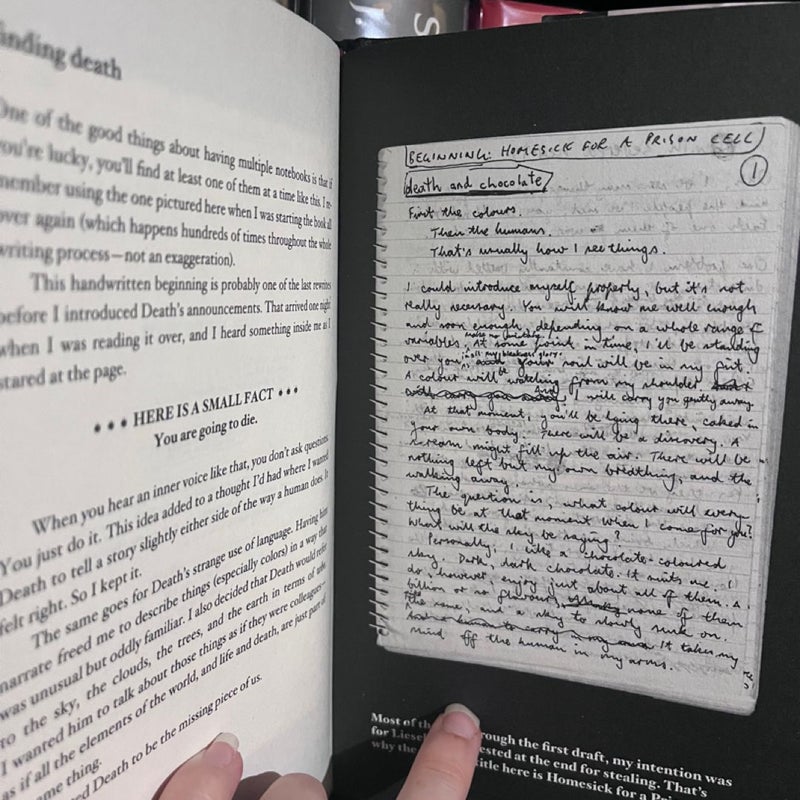 finding death
One of the good things about having multiple notebooks is that if
you're lucky, you'll find at least one of them at a time like this. I re-
member using the one pictured here when I was starting the book all
over again (which happens hundreds of times throughout the whole
writing process—not an exaggeration).
This handwritten beginning is probably one of the last rewrites
before I introduced Death's announcements. That arrived one night
when I was reading it over, and I heard something inside me as I
stared at the page.
• • • HERE IS A SMALL FACT • • •
You are going to die.
When you hear an inner voice like that, you don't ask questions.
You just do it. This idea added to a thought I'd had where I wanted
Death to tell a story slightly either side of the way a human does. It
felt right. So I kept it.
The same goes for Death's strange use of language. Having him
narrate freed me to describe things (especially colors) in a way that
was unusual but oddly familiar. I also decided that Death would refer
to the sky, the clouds, the trees, and the earth in terms of
I wanted him to talk about those things as if they were colleagues—
as if all the elements of the world, and life and death, are just part of
same thing.
ed Death to be the missing piece of us.
BEGINNING: HOMESICK FOR A PRISON CELL
1
death and chocolate
First the colours.
Then the humans.
That's usually how I see things.
I could introduce myself properly, but it's not
really necessary. You will know me well enough
and soon enough, depending on a whole range of
variables. At some point in time, I'll be standing
over you, in all my bleakest glory. your soul will be in my
A colour will be watching from my shoulder
And I will carry you gently away
At that moment, you'll be lying there, caked in
your own body. There will be a discovery. A
scream might fill up the air. There will be
nothing left but my own breathing, and the
walking away.
The question is, what colour will every
thing be at that moment when I come for you?
What will the sky be saying?
Personally, I like a chocolate-coloured
sky. Dark, dark chocolate. It suits me. I
do, however, enjoy just about all of them. A
billion or so flavours, none of them
the same, and a sky to slowly suck on.
It takes my
mind off the human in my arms.
Most of the rough the first draft, my intention was
for Liesel ested at the end for stealing. That's
why the title here is Homesick for a